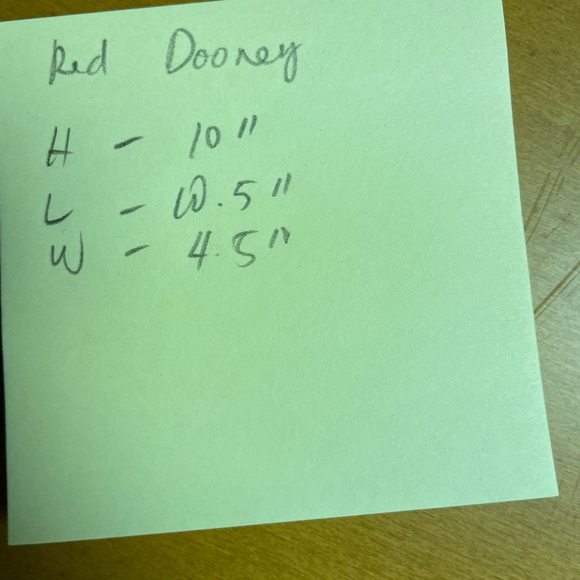 Red Dooney
H - 10"
L - 10.5"
W - 4.5"